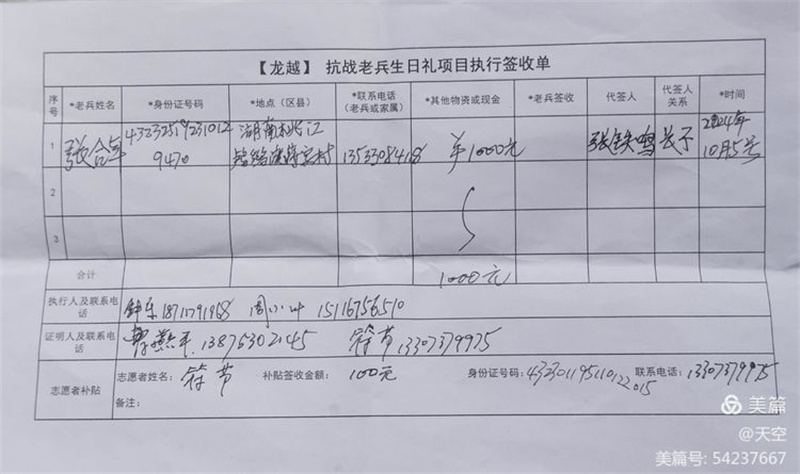 【龙越】 抗战老兵生日礼项目执行签收单
序号 *老兵姓名 *身份证号码 *地点（区县） *联系电话（老兵或家属） *其他物资或现金 *老兵签收 代签人 代签人关系 *时间
1 张合年 43232519231012 湖南 ¥1000元 张铁鸣 长子 2024年
9470 10月5号
2
3
合计 1000元
执行人及联系电话 钟乐 周小叶 15116756510
证明人及联系电话 13875302145 符节 13307379975
志愿者补贴 志愿者姓名: 符节 补贴签收金额: 100元 身份证号码: 联系电话: 13307379975
备注:
美篇
@天空
美篇号: 54237667